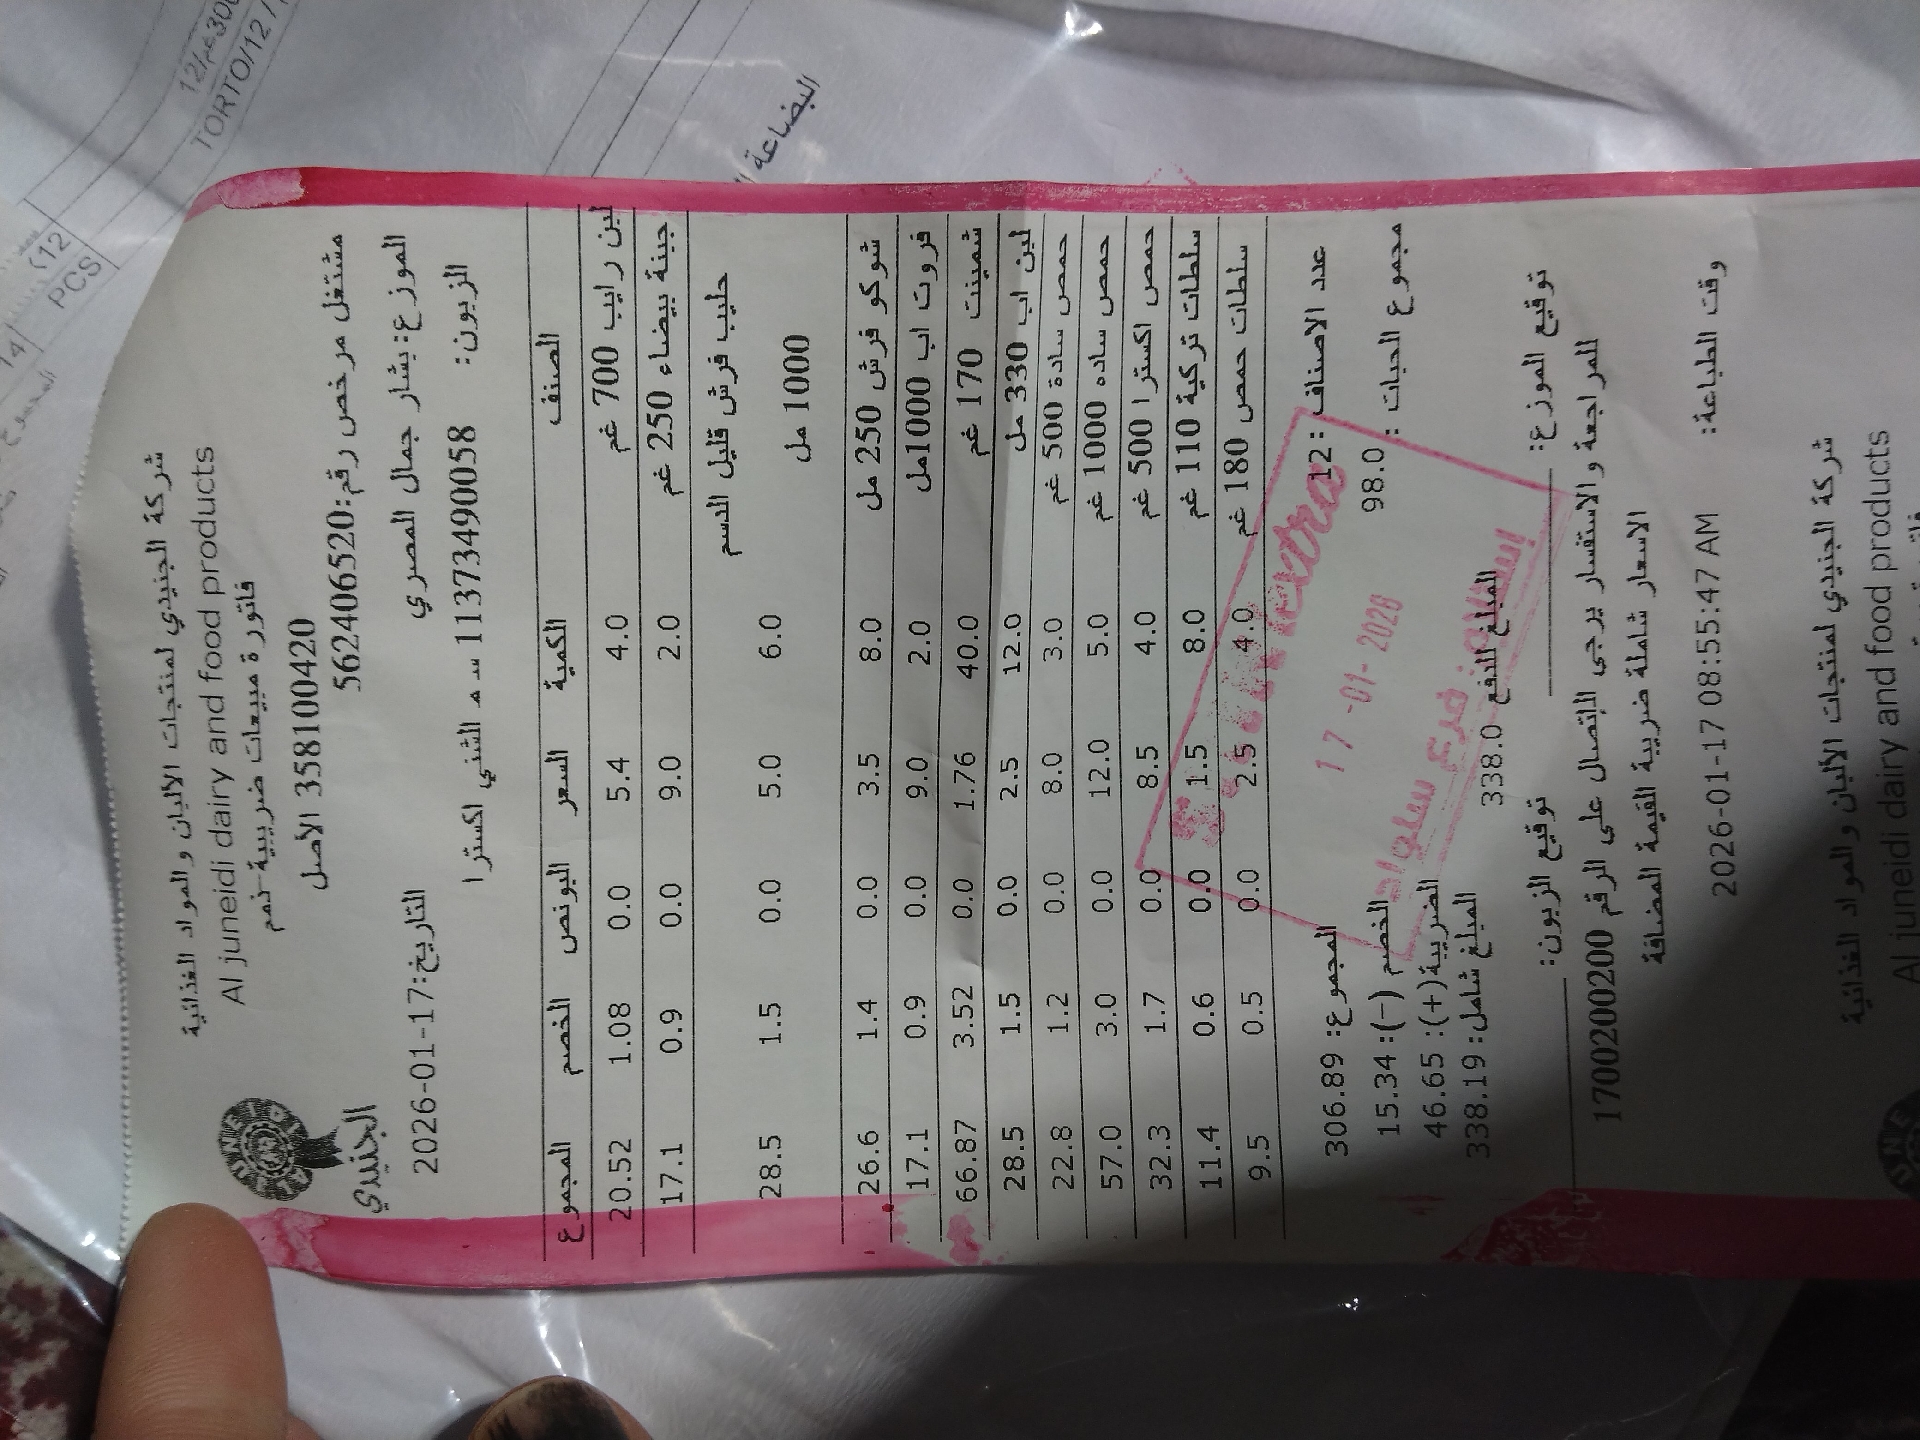 شركة الجنيدي لمنتجات الألبان والمواد الغذائية
Al juneidi dairy and food products
فاتورة مبيعات ضريبية-ذمم
358100420 الاصل
مشتغل مرخص رقم:562406520
الجنيدي
الموزع: بشار جمال المصري
التاريخ:2026-01-17
الزبون: 1137349900058 سـ مـ الشني اكسترا
الصنف الكمية السعر البونص الخصم المجموع
لبن رايب 700 غم 4.0 5.4 0.0 1.08 20.52
جبنة بيضاء 250 غم 2.0 9.0 0.0 0.9 17.1
حليب فرش قليل الدسم
1000 مل 6.0 5.0 0.0 1.5 28.5
شوكو فرش 250 مل 8.0 3.5 0.0 1.4 26.6
فروت اب 1000مل 2.0 9.0 0.0 0.9 17.1
شمينت 170 غم 40.0 1.76 0.0 3.52 66.87
لبن اب 330 مل 12.0 2.5 0.0 1.5 28.5
حمص سادة 500 غم 3.0 8.0 0.0 1.2 22.8
حمص ساده 1000 غم 5.0 12.0 0.0 3.0 57.0
حمص اكسترا 500 غم 4.0 8.5 0.0 1.7 32.3
سلطات تركية 110 غم 8.0 1.5 0.0 0.6 11.4
سلطات حمص 180 غم 4.0 2.5 0.0 0.5 9.5
عدد الاصناف : 12 المجموع: 306.89
مجموع الحبات : 98.0 الخصم (-): 15.34
الضريبة(+): 46.65
المبلغ للدفع 338.0 المبلغ شامل: 338.19
extra
17 -01- 2026
فرع سلواد
توقيع الموزع: توقيع الزبون:
للمراجعة والاستفسار يرجى الإتصال على الرقم 1700200200
الاسعار شاملة ضريبة القيمة المضافة
وقت الطباعة: 2026-01-17 08:55:47 AM
شركة الجنيدي لمنتجات الألبان والمواد الغذائية
Al juneidi dairy and food products
TORTO/12 /
PCS
البضاعة